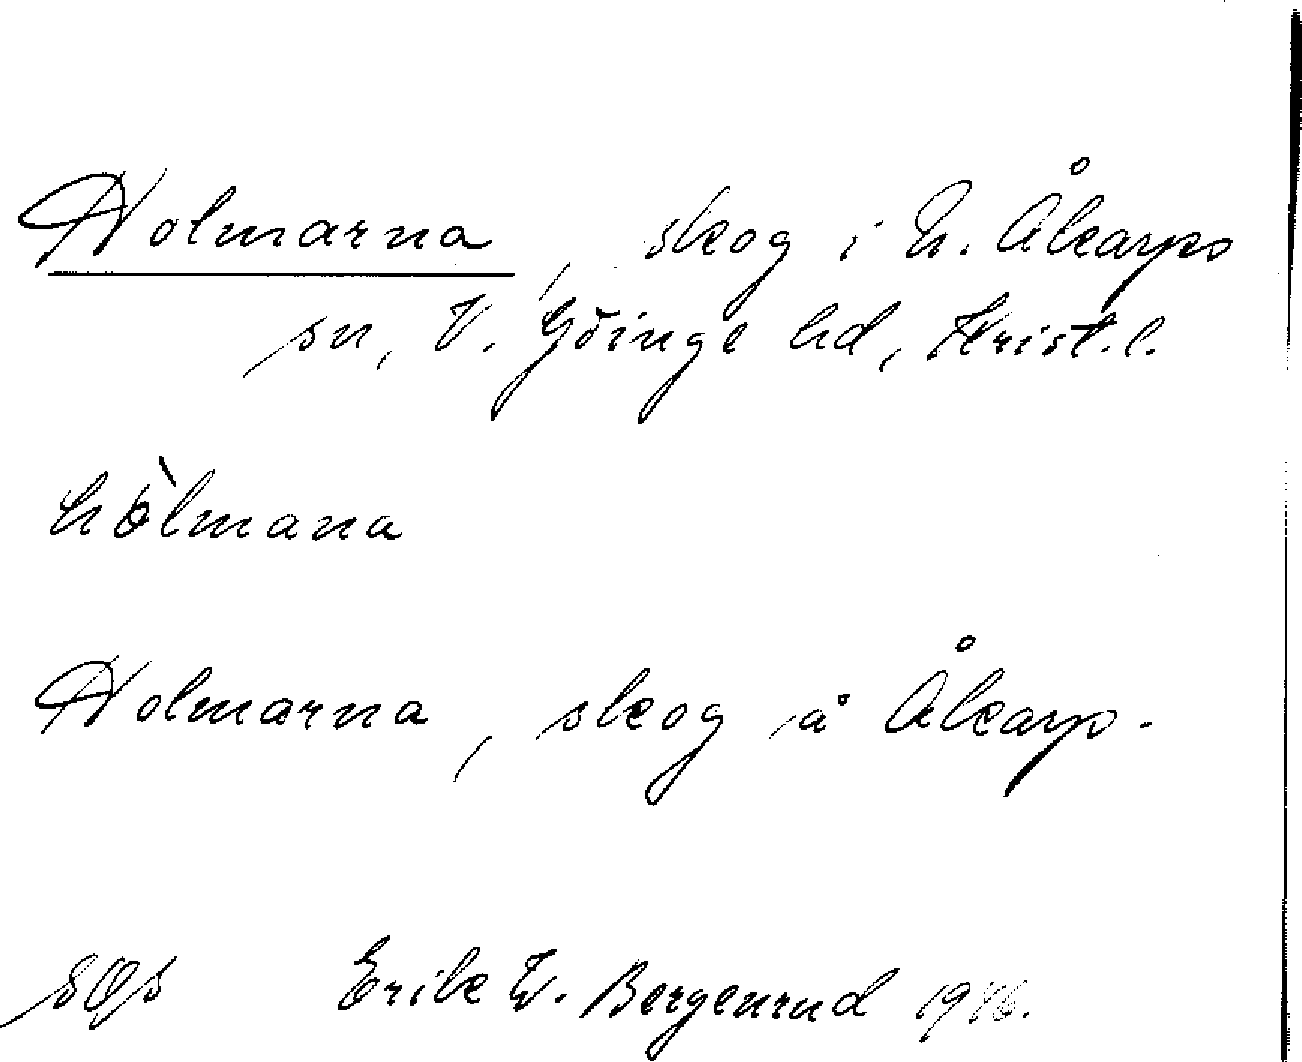 Holmarna, skog i N. Åkarps
sn, V. Göinge hd, Krist. l.
hòlmana
Holmarna, skog å Åkarp.
Erik W. Bergenrud 1946.